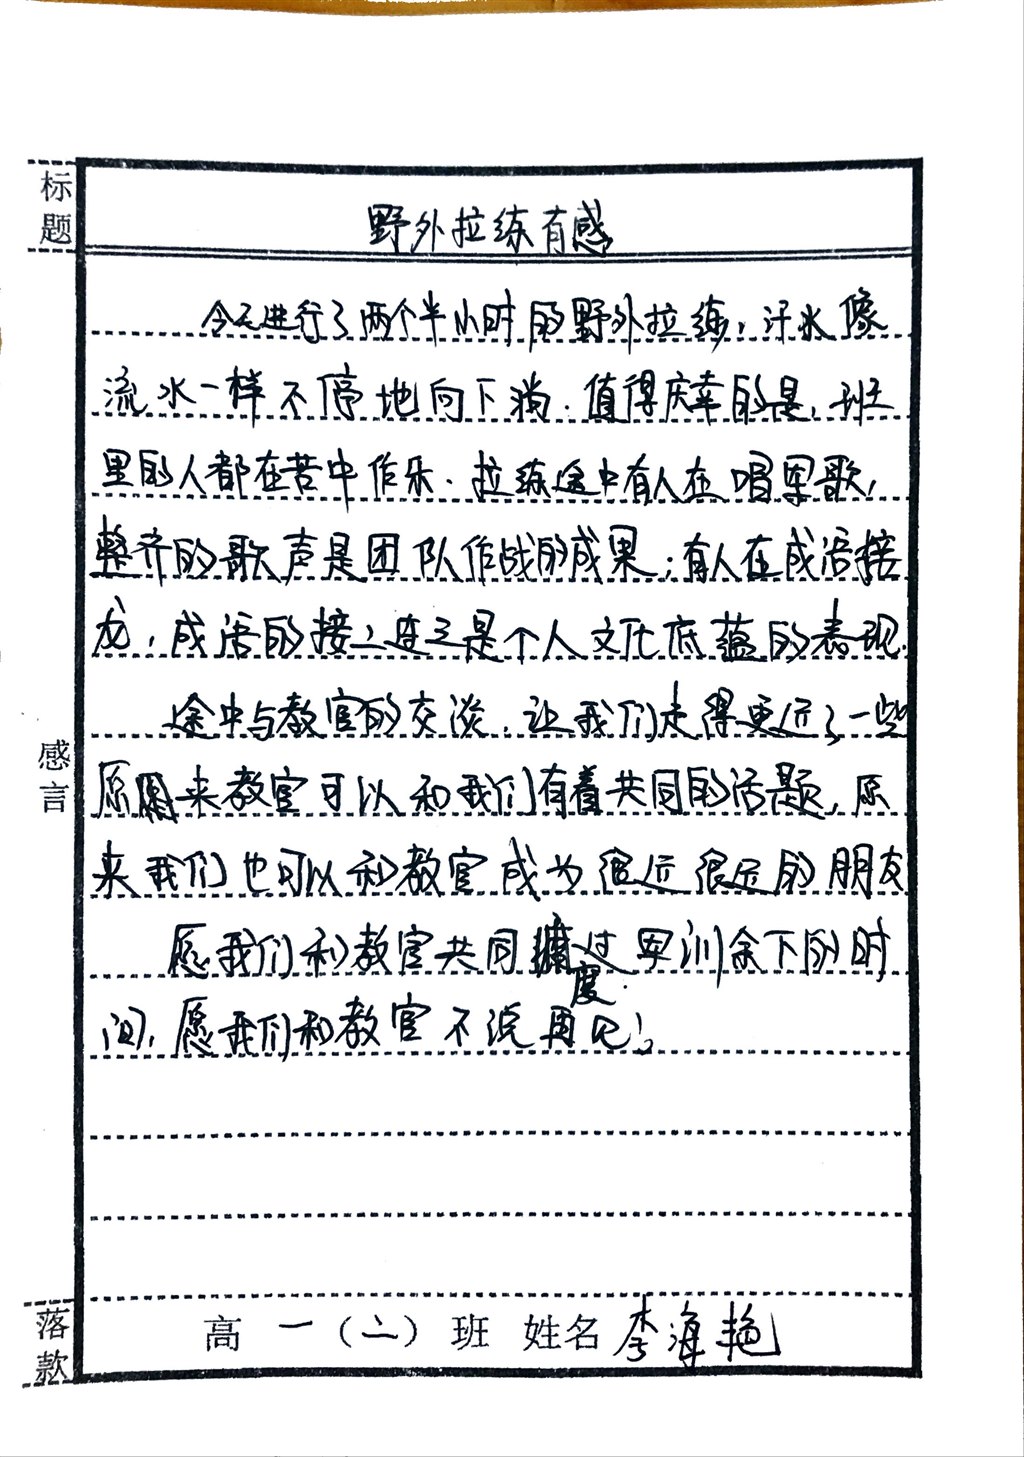 标题
野外拉练有感
今天进行了两个半小时的野外拉练，汗水像
流水一样不停地向下淌.值得庆幸的是，班
里的人都在苦中作乐.拉练途中有人在唱军歌，
整齐的歌声是团队作战的成果；有人在成语接
龙，成语的接二连三是个人文化底蕴的表现.
途中与教官的交谈，让我们走得更近了一些
感言
原来教官可以和我们有着共同的话题，原
来我们也可以和教官成为很近很近的朋友
愿我们和教官共同度过军训余下的时
间，愿我们和教官不说再见！
落款
高一（二）班 姓名 李海艳